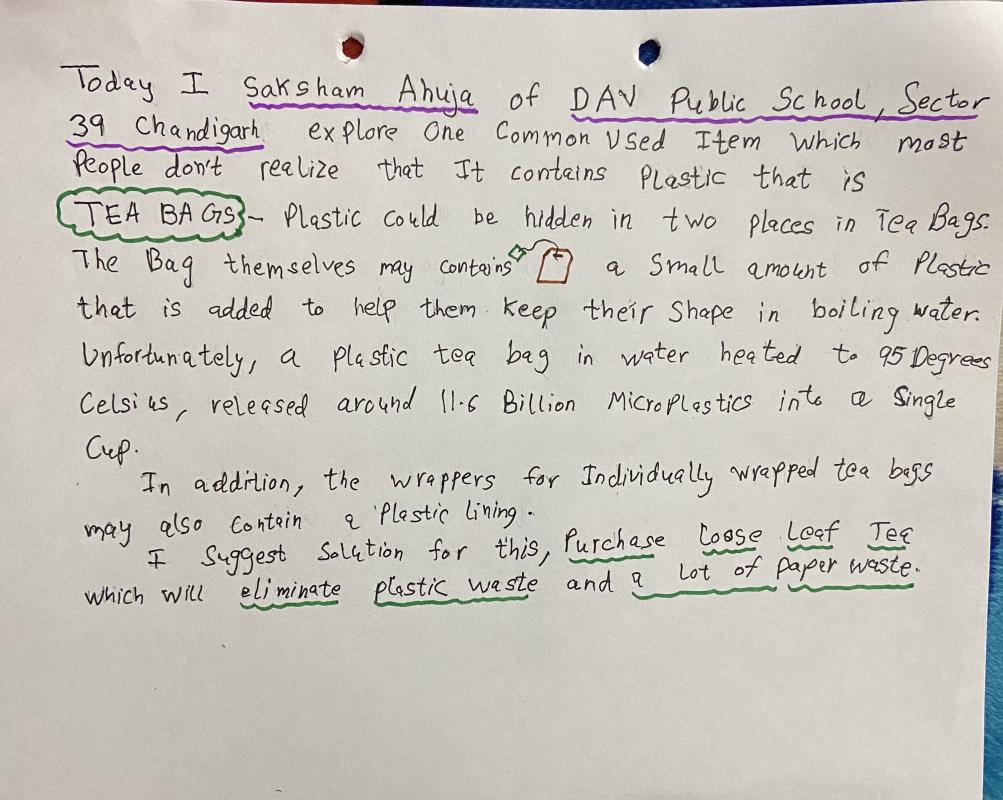 Today I Saksham Ahuja of DAV Public School, Sector
39 Chandigarh explore One Common Used Item which most
People don't realize that It contains Plastic that is
TEA BAGS - Plastic Could be hidden in two places in Tea Bags.
The Bag themselves may contains a Small amount of Plastic
that is added to help them Keep their Shape in boiling water.
Unfortunately, a plastic tea bag in water heated to 95 Degrees
Celsius, released around 11.6 Billion MicroPlastics into a Single
Cup.
In addition, the wrappers for Individually wrapped tea bags
may also Contain a Plastic lining.
I Suggest Solution for this, Purchase Loose Leaf Tea
which will eliminate plastic waste and a Lot of paper waste.